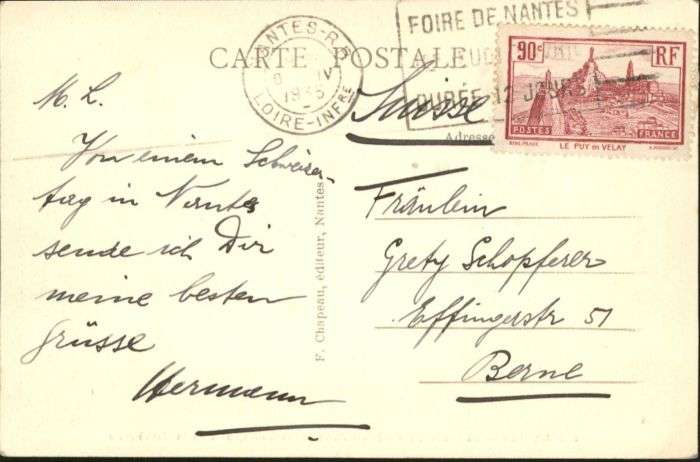 CARTE POSTALE
NANTES-R.P.
IV
1935
LOIRE-INFRE
FOIRE DE NANTES
DURÉE 12 JOURS
90c RF
POSTES FRANCE
LE PUY EN VELAY
Suisse
Adresse
M. L.
Von einem Schweizer-
tag in Nantes
sende ich Dir
meine besten
Grüsse
Hermann
F. Chapeau, éditeur, Nantes
Fräulein
Grety Schopferer
Effingerstr 51
Berne